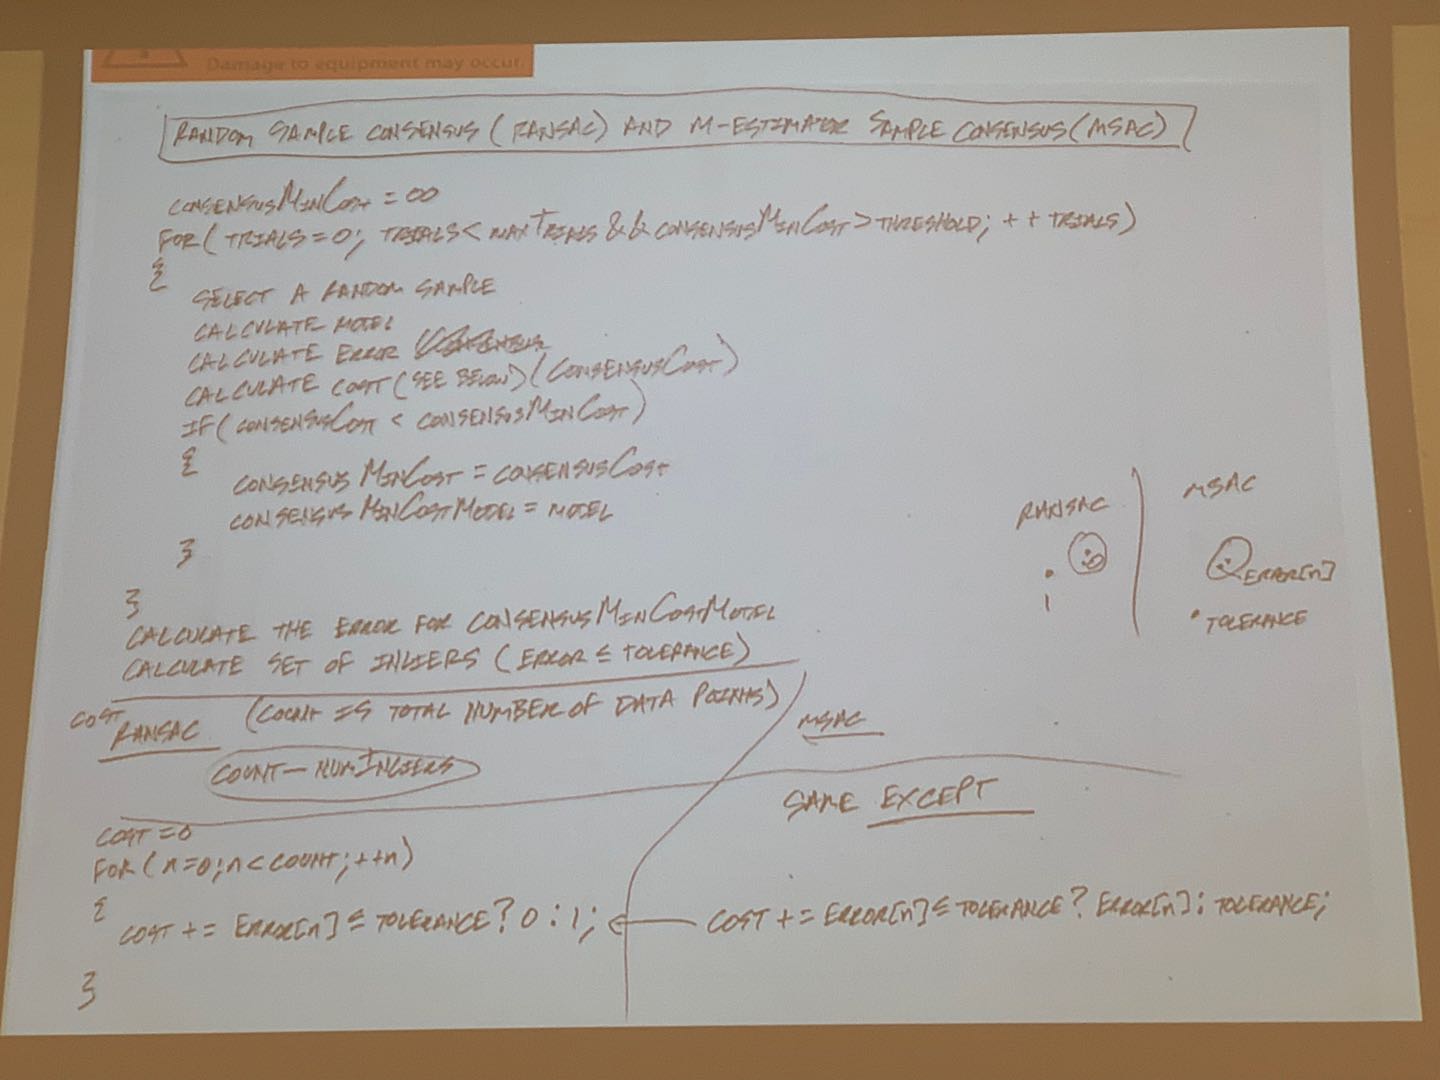 Damage to equipment may occur.
RANDOM SAMPLE CONSENSUS (RANSAC) AND M-ESTIMATOR SAMPLE CONSENSUS (MSAC)
CONSENSUSMINCOST = ∞
FOR( TRIALS=0; TRIALS< MAXTRIALS && CONSENSUSMINCOST > THRESHOLD; ++TRIALS)
{
SELECT A RANDOM SAMPLE
CALCULATE MODEL
CALCULATE ERROR
CALCULATE COST (SEE BELOW) (CONSENSUSCOST)
IF( CONSENSUSCOST < CONSENSUSMINCOST)
{
CONSENSUS MINCOST = CONSENSUSCOST
CONSENSUS MINCOSTMODEL = MODEL
}
}
CALCULATE THE ERROR FOR CONSENSUSMINCOSTMODEL
CALCULATE SET OF INLIERS (ERROR ≤ TOLERANCE)
RANSAC
0
1
MSAC
ERROR[n]
TOLERANCE
COST
RANSAC (COUNT IS TOTAL NUMBER OF DATA POINTS)
COUNT - NUMINLIERS
COST = 0
FOR (n=0; n< COUNT; ++n)
{
COST += ERROR[n] ≤ TOLERANCE ? 0 : 1;
}
MSAC
SAME EXCEPT
COST += ERROR[n] ≤ TOLERANCE ? ERROR[n] : TOLERANCE;